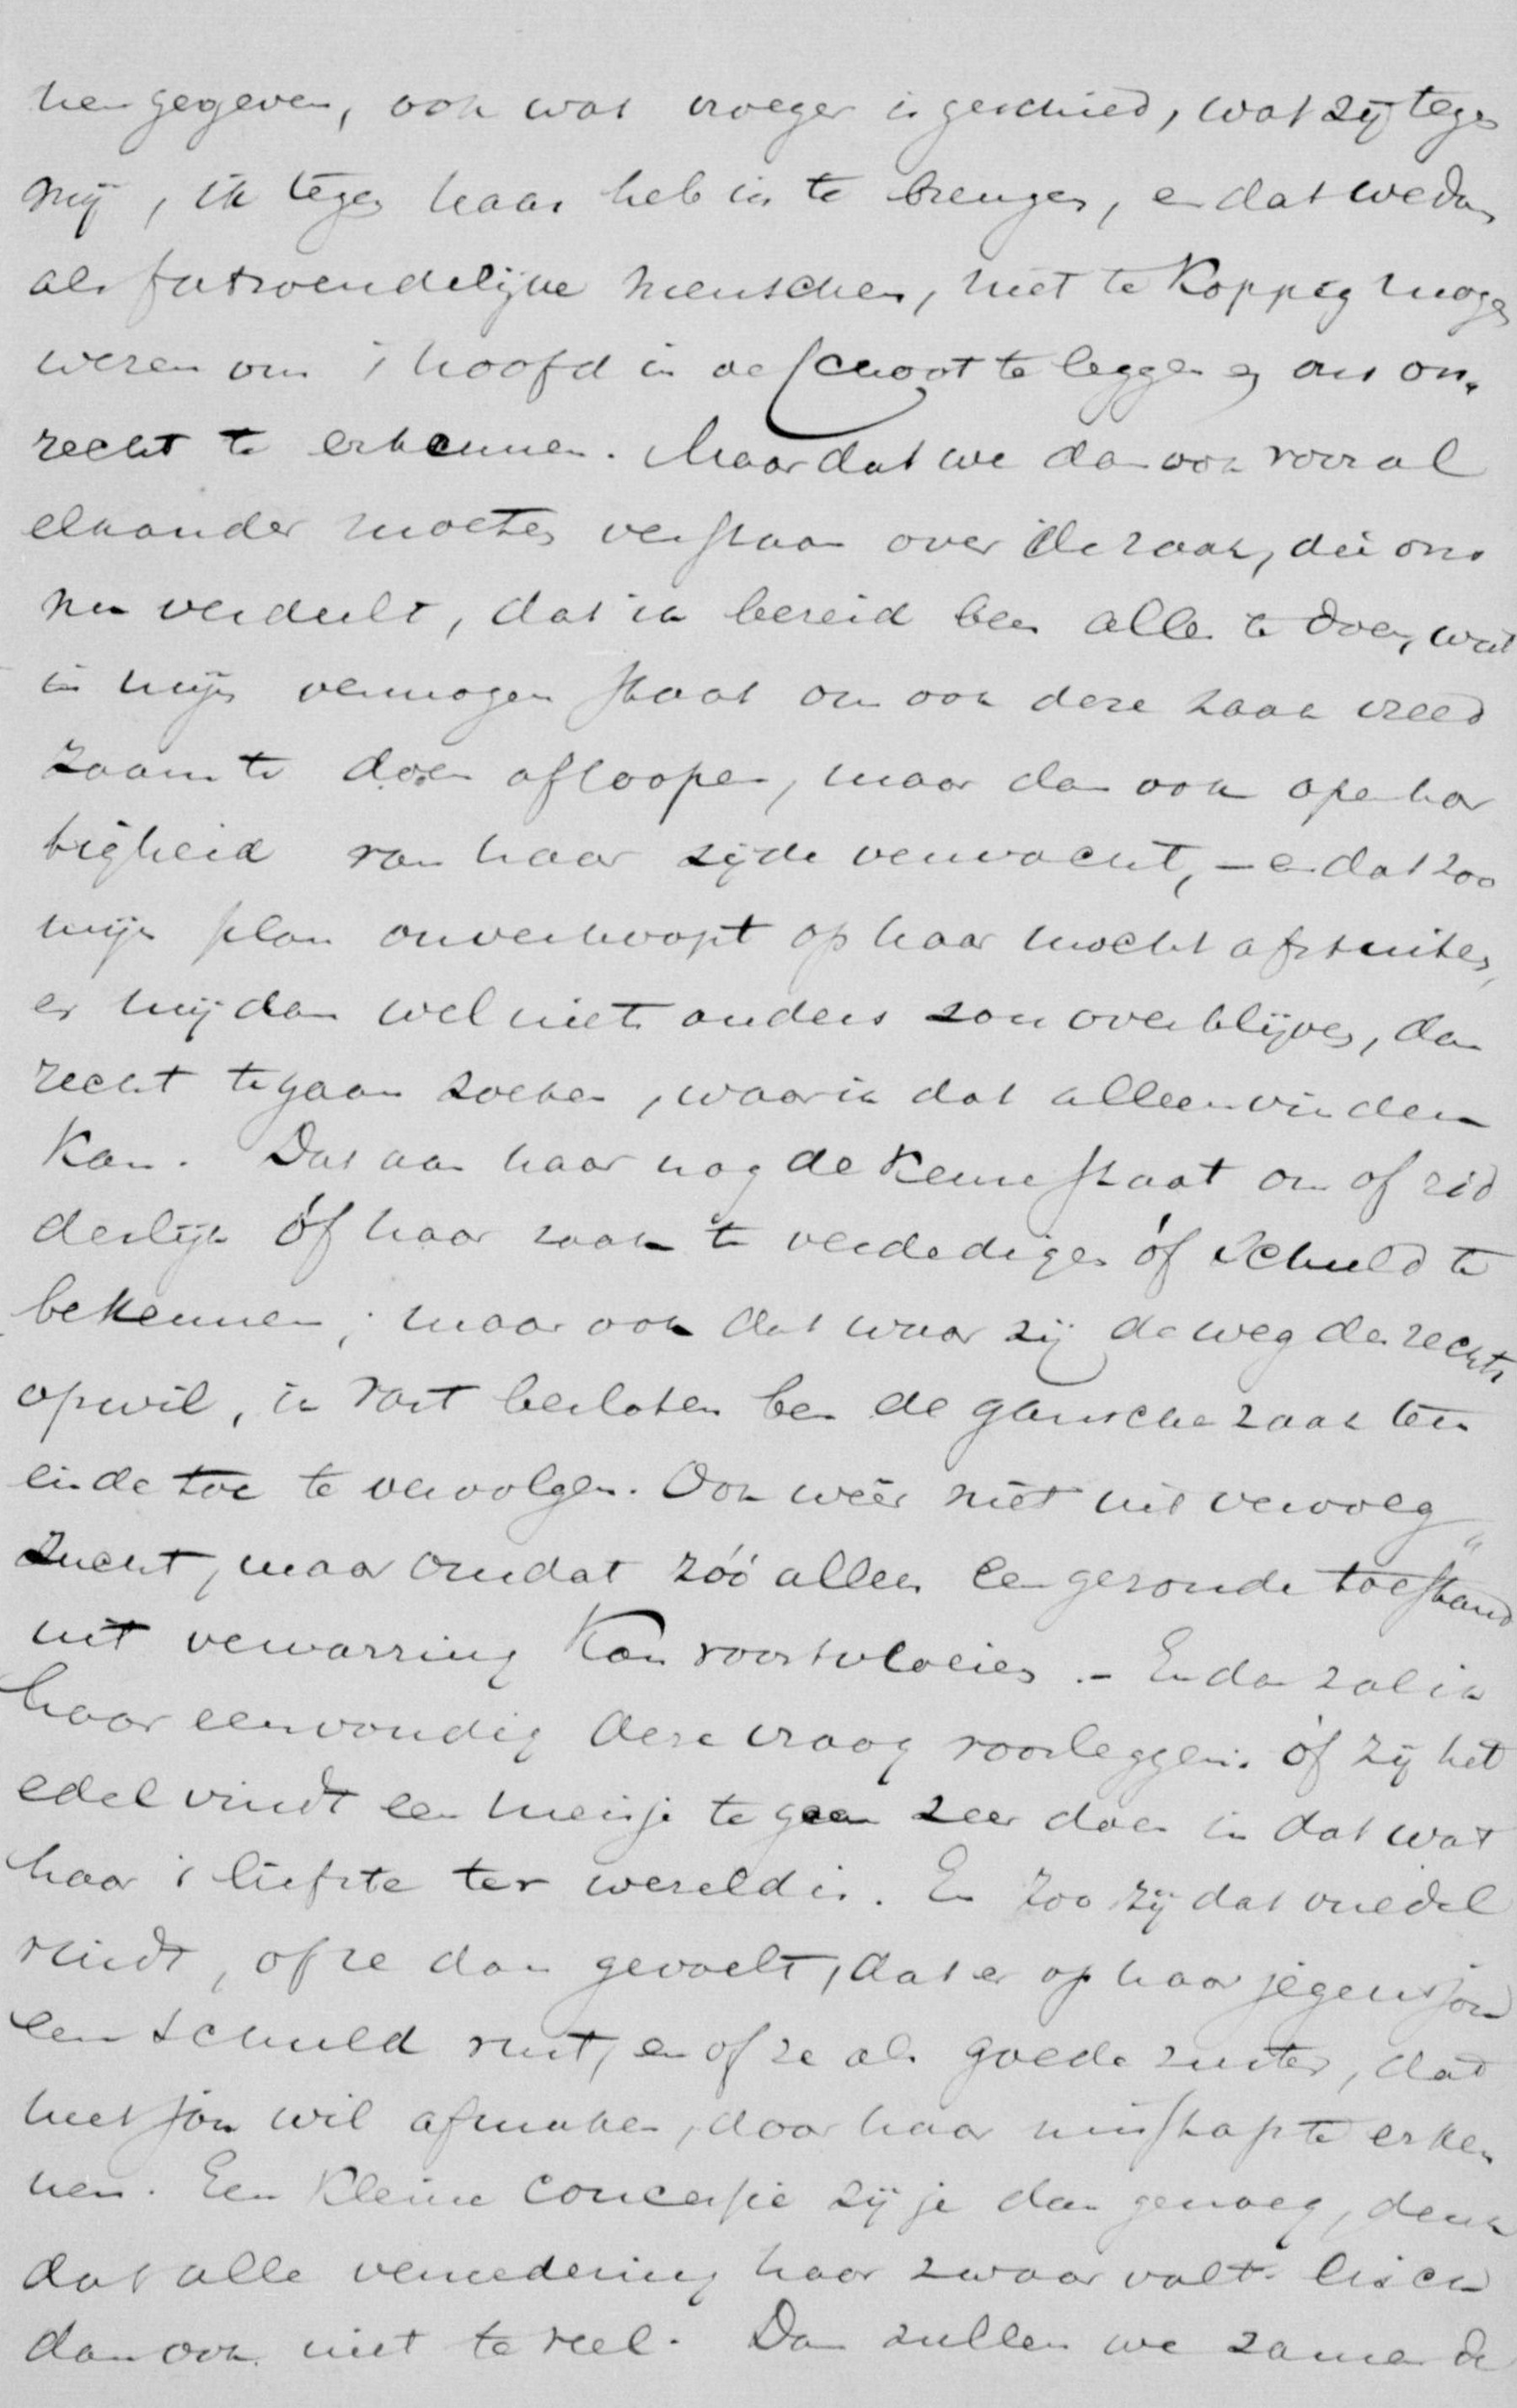 hen gegeven, ook wat vroeger is geschied, wat zij tegen
mij, ik tegen haar heb in te brengen, en dat we dan
als fatsoendelijke menschen, niet te koppig mogen
wezen om 't hoofd in de schoot te leggen en ons on„
recht te erkennen. Maar dat we dan ook vooral
elkander moeten verstaan over de zaak, die ons
nu verdeelt, dat ik bereid ben alles te doen, wat
in mijn vermogen staat om ook deze zaak vreed
zaam te doen afloopen, maar dan ook openhar
tigheid van haar zijde verwacht, – en dat zoo
mijn plan onverhoopt op haar mocht afstuiten,
er mij dan wel niets anders zou overblijven, dan
recht te gaan zoeken, waar ik dat alleen vinden
kan. Dat aan haar nog de keuze staat om of rid
derlijk óf haar zaak te verdedigen óf schuld te
bekennen; maar ook dat waar zij de weg des rechts
opwil, ik vast besloten ben de gansche zaak ten
einde toe te vervolgen. Ook wéér niet uit vervolg„
zucht, maar omdat zóó alleen een gezonde toestand
uit verwarring kan voortvloeien. – En dan zal ik
haar eenvoudig deze vraag voorleggen: óf zij het
edel vindt een meisje te gaan zeer doen in dat wat
haar 't liefste ter wereld is. En zoo zij dat onedel
vindt, of ze dan gevoelt, dat er op haar jegens jou
een schuld rust, en of ze als goede zuster, dat
met jou wil afmaken, door haar misstap te erken
nen. Een kleine concessie zij je dan genoeg, denk
dat alle vernedering haar zwaar valt. Eisch
dan ook niet te veel. Dan zullen we samen de